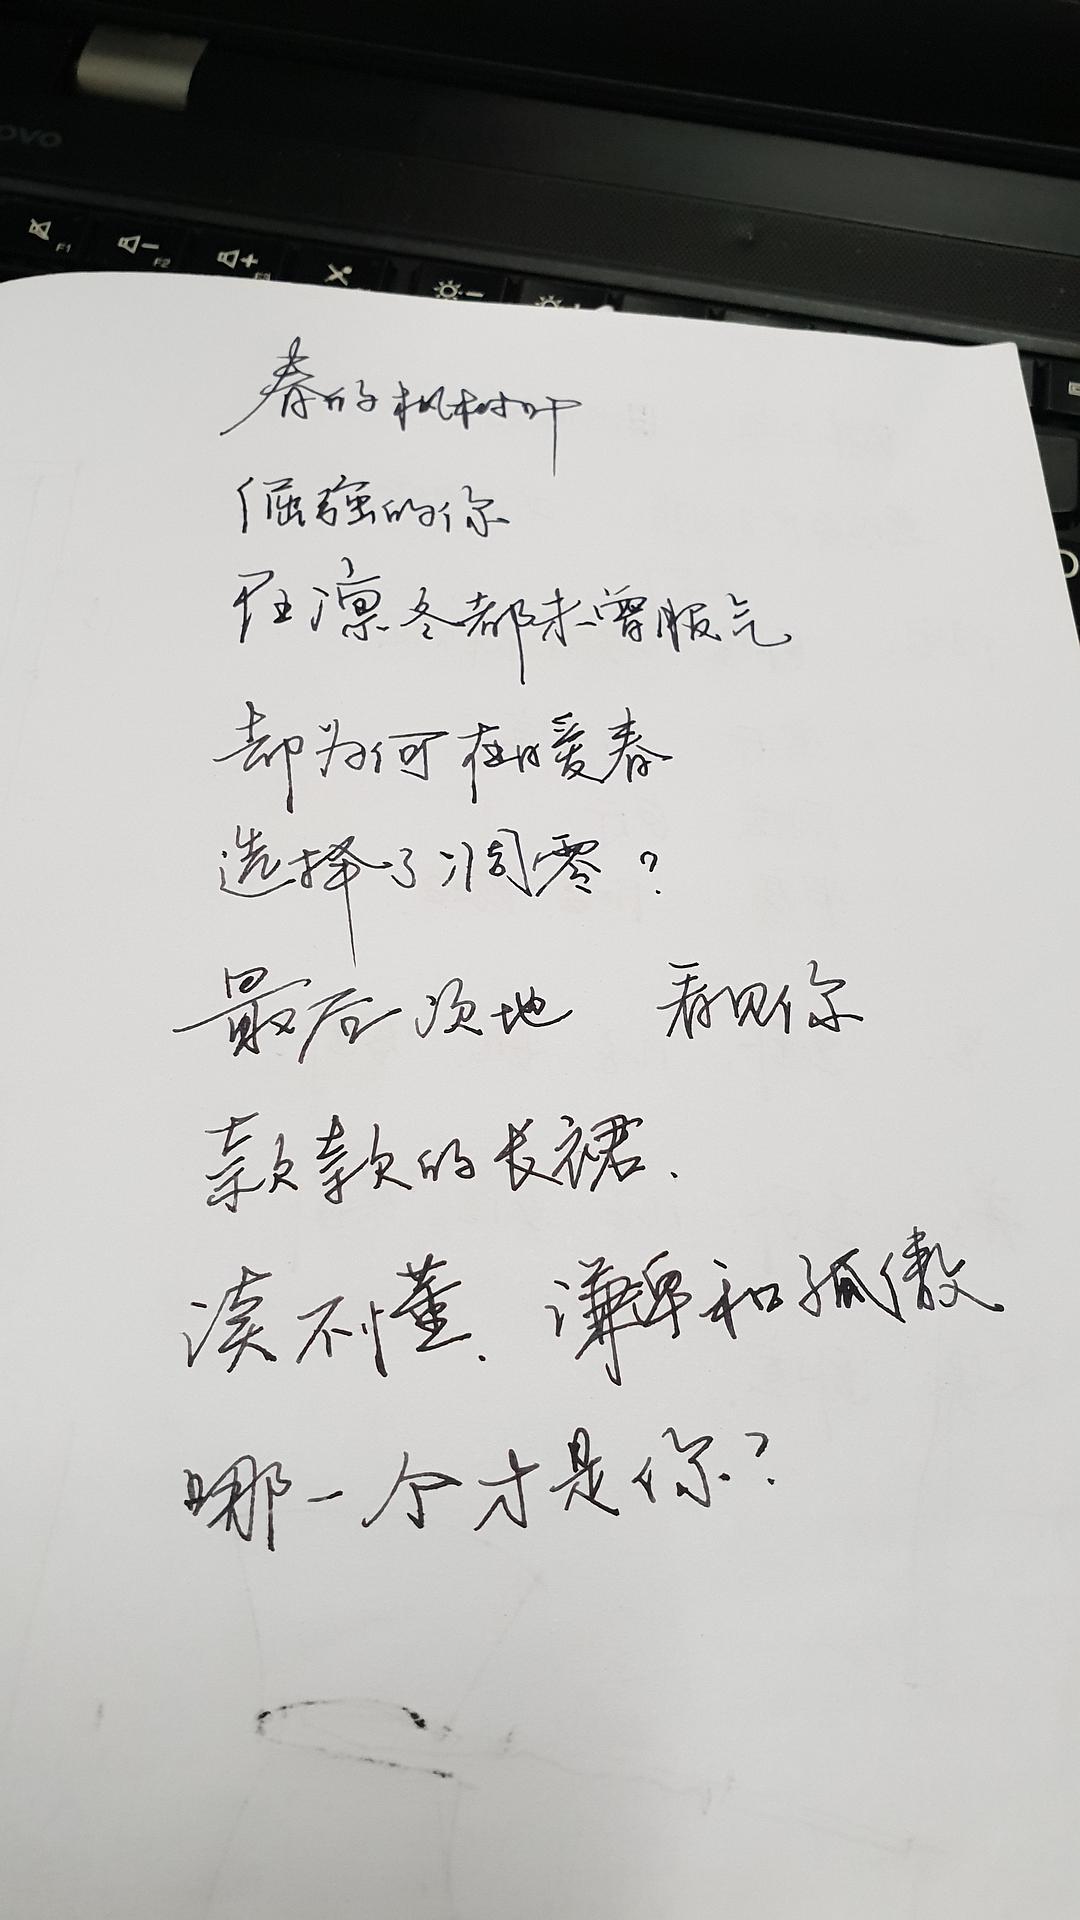 ovo
F1 F2 F3
春的枫树叶
倔强的你
在凛冬都未曾服气
却为何在暖春
选择了凋零？
最后一次地 看见你
款款的长裙.
读不懂. 谦卑和孤傲
哪一个才是你？